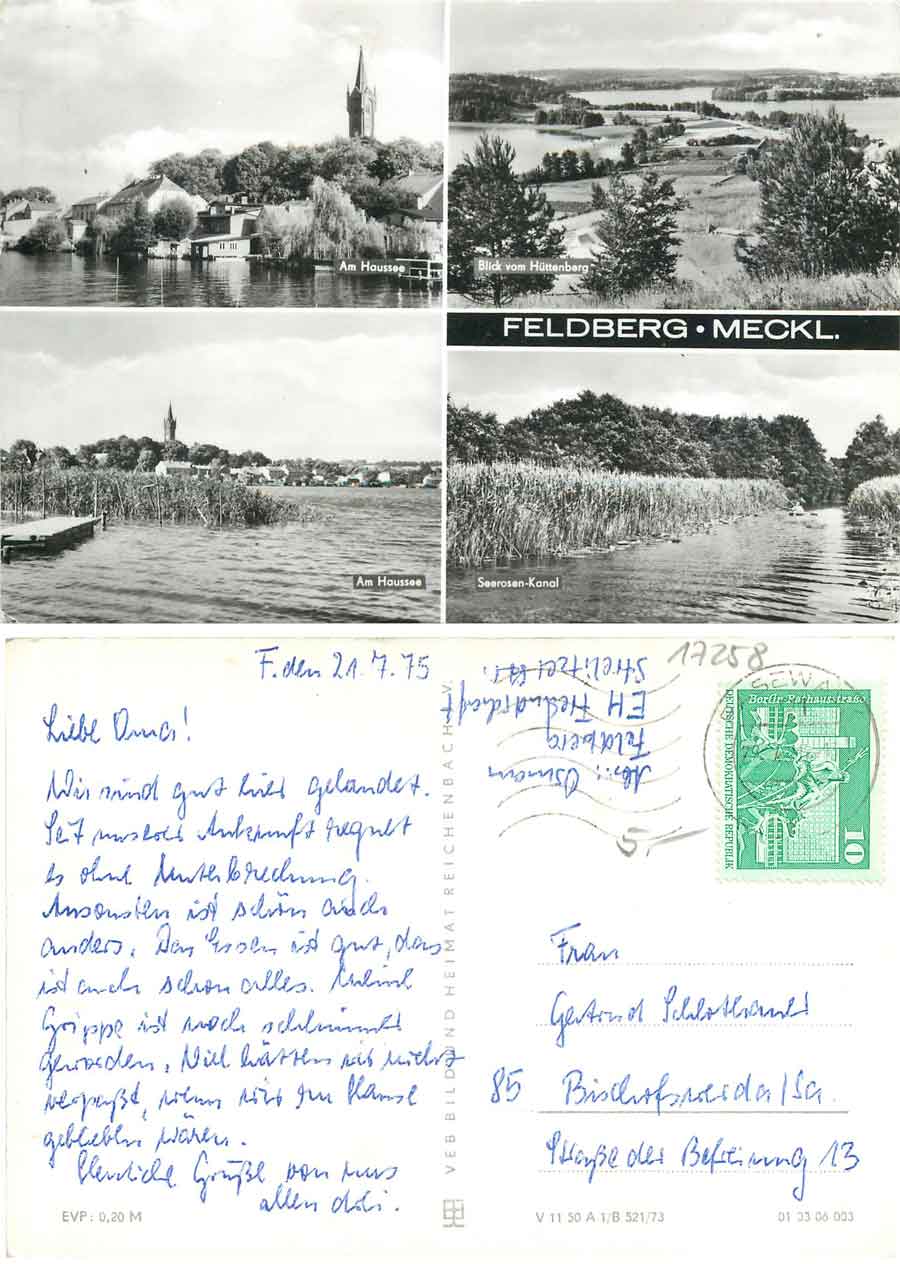 Am Haussee
Blick vom Hüttenberg
FELDBERG • MECKL.
Am Haussee
Seerosen-Kanal
F. den 21.7.75
Liebe Oma!
Wir sind gut hier gelandet.
Seit unserer Ankunft regnet
es ohne Unterbrechung.
Ansonsten ist schön auch
anders. Das Essen ist gut, das
ist auch schon alles. Meine
Grippe ist noch schlimmer
geworden. Viel hätten wir nicht
verpaßt, wenn wir zu Hause
geblieben wären.
Herzliche Grüße von uns
allen drei.
EVP: 0,20 M
VEB BILD UND HEIMAT REICHENBACH I. V.
17258
Abs.: Osmann
Feldberg
EH Freundschaft
Strelitzer Str.
5,-
Berlin-Rathausstraße
DEUTSCHE DEMOKRATISCHE REPUBLIK
10
Frau
Gertrud
85 Bischofswerda/Sa.
Straße der Befreiung 13
V 11 50 A 1/B 521/73
01 03 06 003